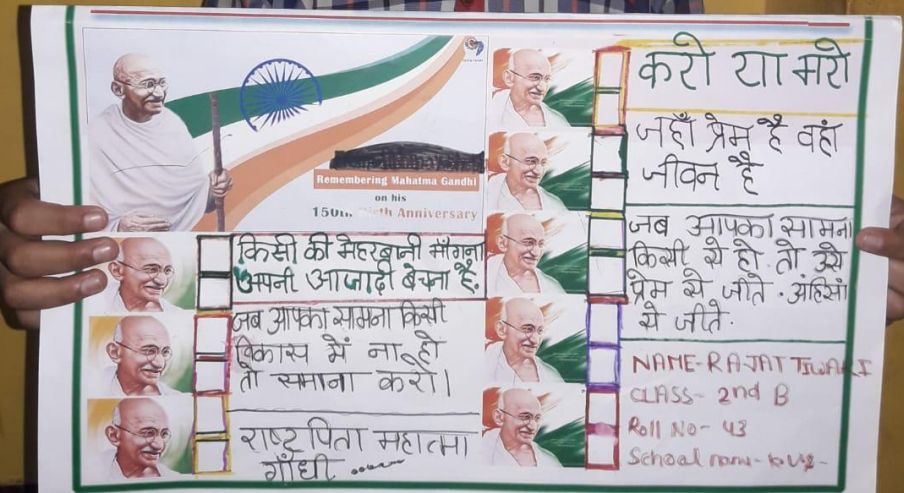 Remembering Mahatma Gandhi
on his
150th Birth Anniversary
किसी की मेहरबानी माँगना
अपनी आजादी बेचना है.
जब आपका सामना किसी
विकास में ना हो
तो समाना करो।
राष्ट्र पिता महात्मा
गाँधी ......
करो या मरो
जहाँ प्रेम है वहां
जीवन है
जब आपका सामना
किसी से हो तो उसे
प्रेम से जीते . अहिंसा
से जीते.
NAME- RAJAT TIWARI
CLASS- 2nd B
Roll No- 43
School name- K.V.